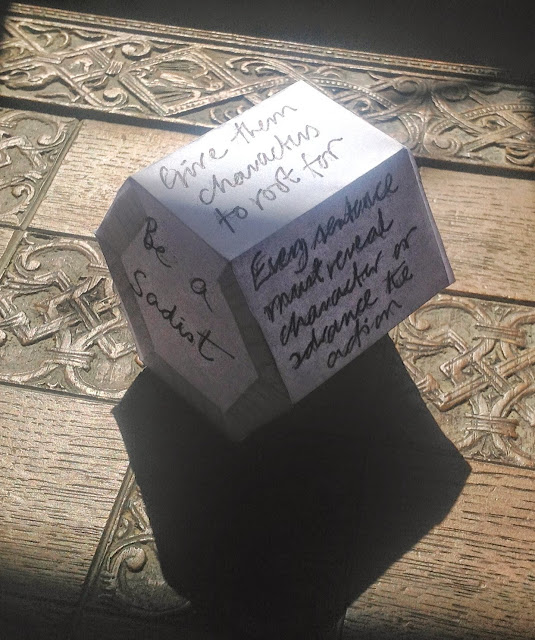 Give them
characters
to root for
Be a
Sadist
Every sentence
must reveal
character or
advance the
action